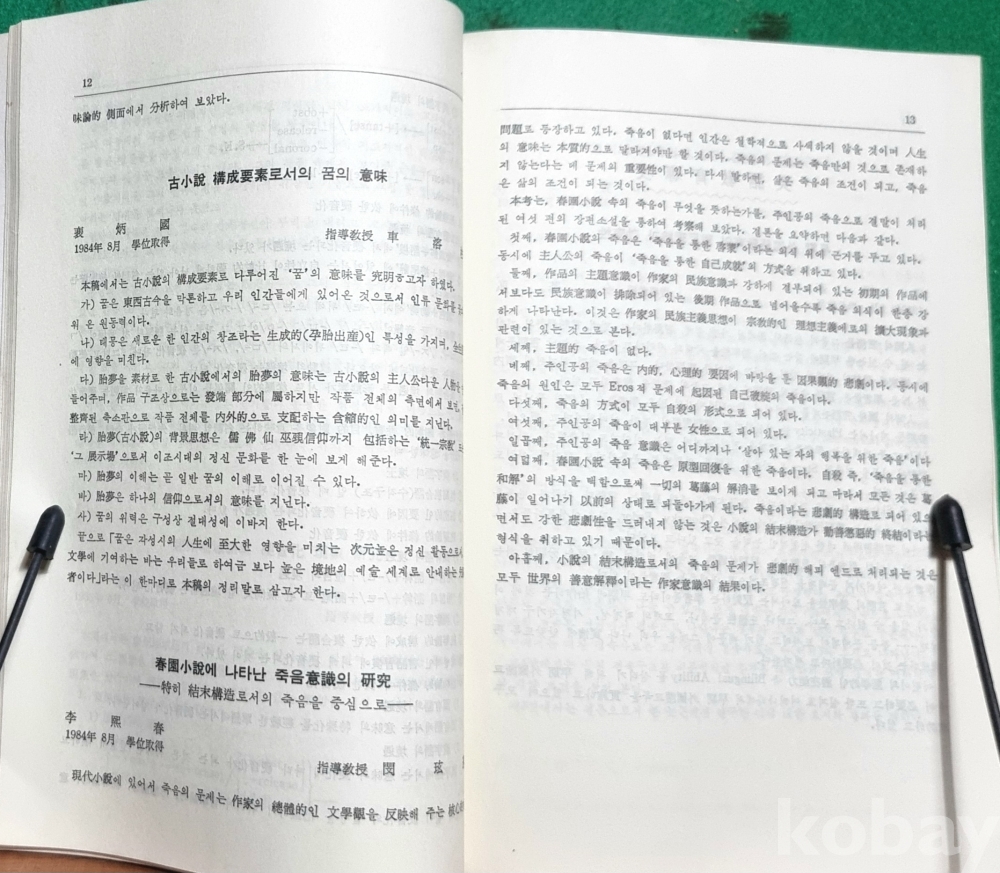 12
味論的 側面에서 分析하여 보았다.
古小說 構成要素로서의 꿈의 意味
裵 炳 國
1984年 8月 學位取得
指導敎授 車 溶
本稿에서는 古小說의 構成要素로 다루어진 '꿈'의 意味를 究明하고자 하였다.
가) 꿈은 東西古今을 막론하고 우리 인간들에게 있어온 것으로서 인류 문화를
위 온 원동력이다.
나) 태몽은 새로운 한 인간의 창조라는 生成的(孕胎出産)인 특성을 가지며,
에 영향을 미친다.
다) 胎夢을 素材로 한 古小說에서의 胎夢의 意味는 古小說의 主人公다운 人物
들어주며, 作品 구조상으로는 發端 部分에 屬하지만 작품 전체의 측면에서 보면,
整齊된 축소판으로 작품 전체를 內外的으로 支配하는 含縮的인 의미를 지닌다.
라) 胎夢(古小說)의 背景思想은 儒 佛 仙 巫覡信仰까지 包括하는 '統一宗敎'
'그 展示場'으로서 이조시대의 정신 문화를 한 눈에 보게 해준다.
마) 胎夢의 이해는 곧 일반 꿈의 이해로 이어질 수 있다.
바) 胎夢은 하나의 信仰으로서의 意味를 지닌다.
사) 꿈의 위력은 구성상 절대성에 이바지 한다.
끝으로 「꿈은 각성시의 人生에 至大한 영향을 미치는 次元높은 정신 활동으로
文學에 기여하는 바는 우리들로 하여금 보다 높은 境地의 예술 세계로 안내하는
者이다」라는 이 한마디로 本稿의 정리말로 삼고자 한다.
春園小說에 나타난 죽음意識의 研究
──特히 結末構造로서의 죽음을 중심으로──
李 熙 春
1984年 8月 學位取得
指導敎授 閔 玹
現代小說에 있어서 죽음의 문제는 作家의 總體的인 文學觀을 反映해 주는 核心的
13
問題로 등장하고 있다. 죽음이 없다면 인간은 철학적으로 사색하지 않을 것이며 人生
의 意味는 本質的으로 달라져야만 할 것이다. 죽음의 문제는 죽음만의 것으로 존재하
지 않는다는 데 문제의 重要性이 있다. 다시 말하면, 삶은 죽음의 조건이 되고, 죽음
은 삶의 조건이 되는 것이다.
本考는, 春園小說 속의 죽음이 무엇을 뜻하는가를, 주인공의 죽음으로 결말이 처리
된 여섯 편의 장편소설을 통하여 考察해 보았다. 결론을 요약하면 다음과 같다.
첫째, 春園小說의 죽음은 '죽음을 통한 啓蒙'이라는 의식 위에 근거를 두고 있다.
동시에 主人公의 죽음이 '죽음을 통한 自己成就'의 방식을 취하고 있다.
둘째, 作品의 主題意識이 作家의 民族意識과 강하게 결부되어 있는 初期의 作品에
서보다도 民族意識이 排除되어 있는 後期 作品으로 넘어올수록 죽음 의식이 한층 강
하게 나타난다. 이것은 作家의 民族主義思想이 宗敎的인 理想主義에로의 擴大現象과
관련이 있는 것으로 본다.
세째, 主題的 죽음이 없다.
네째, 주인공의 죽음은 內的, 心理的 要因에 바탕을 둔 因果觀的 悲劇이다. 동시에
죽음의 원인은 모두 Eros적 문제에 起因된 自己犧牲의 죽음이다.
다섯째, 죽음의 方式이 모두 自殺의 形式으로 되어 있다.
여섯째, 주인공의 죽음이 대부분 女性으로 되어 있다.
일곱째, 주인공의 죽음 意識은 어디까지나 '살아 있는 자의 행복을 위한 죽음'이다
여덟째, 春園小說 속의 죽음은 原型回復을 위한 죽음이다. 自殺 즉, '죽음을 통한
和解'의 방식을 택함으로써 一切의 葛藤의 解消를 보이게 되고 따라서 모든 것은 葛
藤이 일어나기 以前의 상태로 되돌아가게 된다. 죽음이라는 悲劇的 構造로 되어 있으
면서도 강한 悲劇性을 드러내지 않는 것은 小說의 結末構造가 勸善懲惡的 終結이라는
형식을 취하고 있기 때문이다.
아홉째, 小說의 結末構造로서의 죽음의 문제가 悲劇的 해피 엔드로 처리되는 것은
모두 世界의 善意解釋이라는 作家意識의 結果이다.
kobay